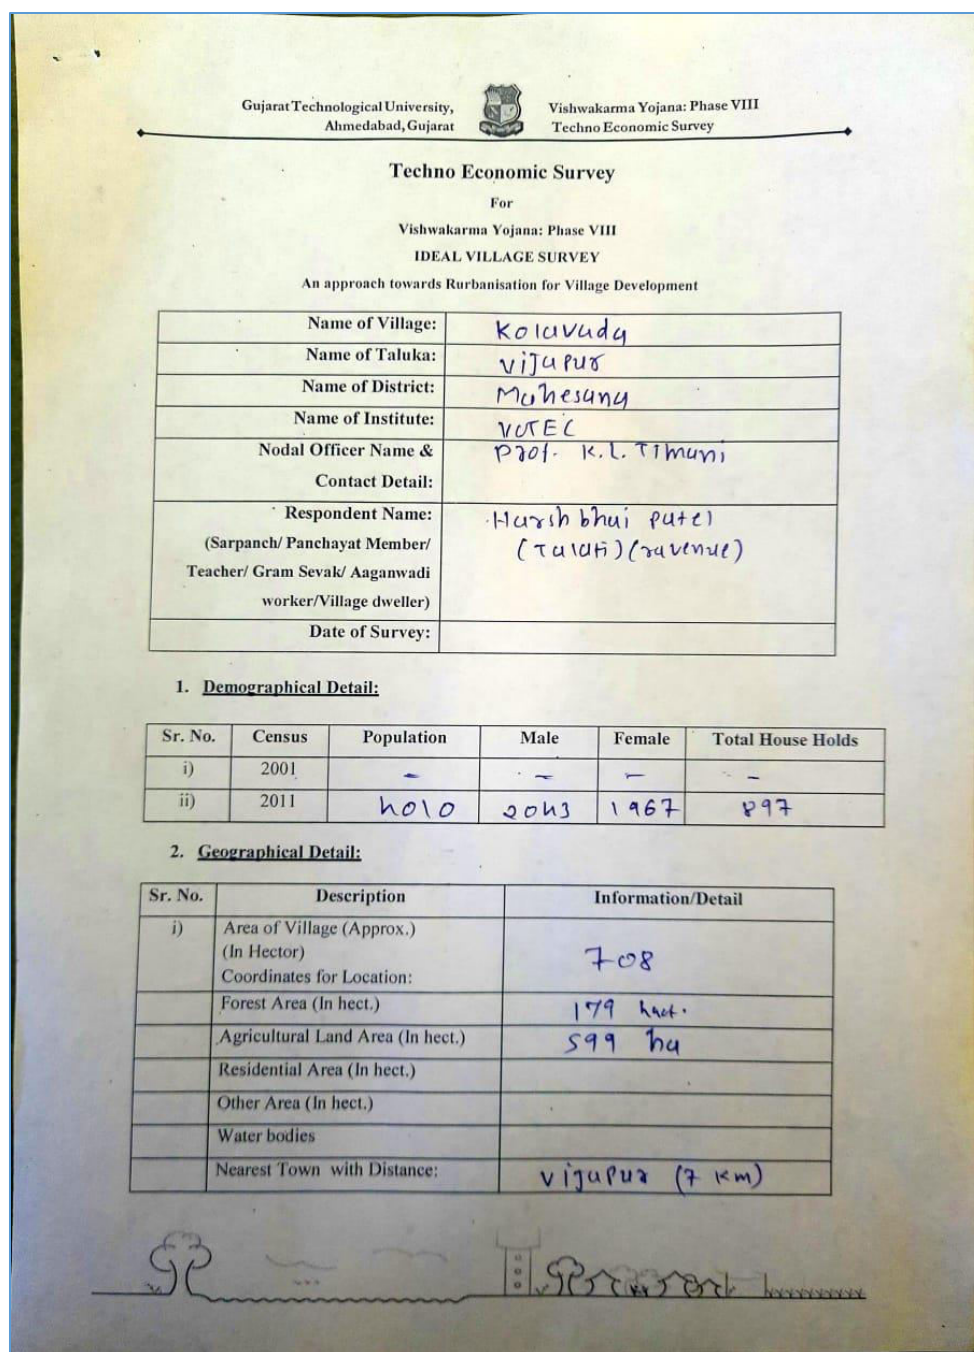 Gujarat Technological University, Vishwakarma Yojana: Phase VIII
Ahmedabad, Gujarat Techno Economic Survey
Techno Economic Survey
For
Vishwakarma Yojana: Phase VIII
IDEAL VILLAGE SURVEY
An approach towards Rurbanisation for Village Development
Name of Village: Kolavada
Name of Taluka: Vijapur
Name of District: Mahesana
Name of Institute: VGEC
Nodal Officer Name & Prof. K.L. Timani
Contact Detail:
Respondent Name: Harshbhai Patel
(Sarpanch/ Panchayat Member/ (Talati) (ravenue)
Teacher/ Gram Sevak/ Aaganwadi
worker/Village dweller)
Date of Survey:
1. Demographical Detail:
Sr. No. Census Population Male Female Total House Holds
i) 2001 - - - -
ii) 2011 4010 2043 1967 897
2. Geographical Detail:
Sr. No. Description Information/Detail
i) Area of Village (Approx.)
(In Hector) 708
Coordinates for Location:
Forest Area (In hect.) 179 hect.
Agricultural Land Area (In hect.) 599 ha
Residential Area (In hect.)
Other Area (In hect.)
Water bodies
Nearest Town with Distance: Vijapur (7 km)